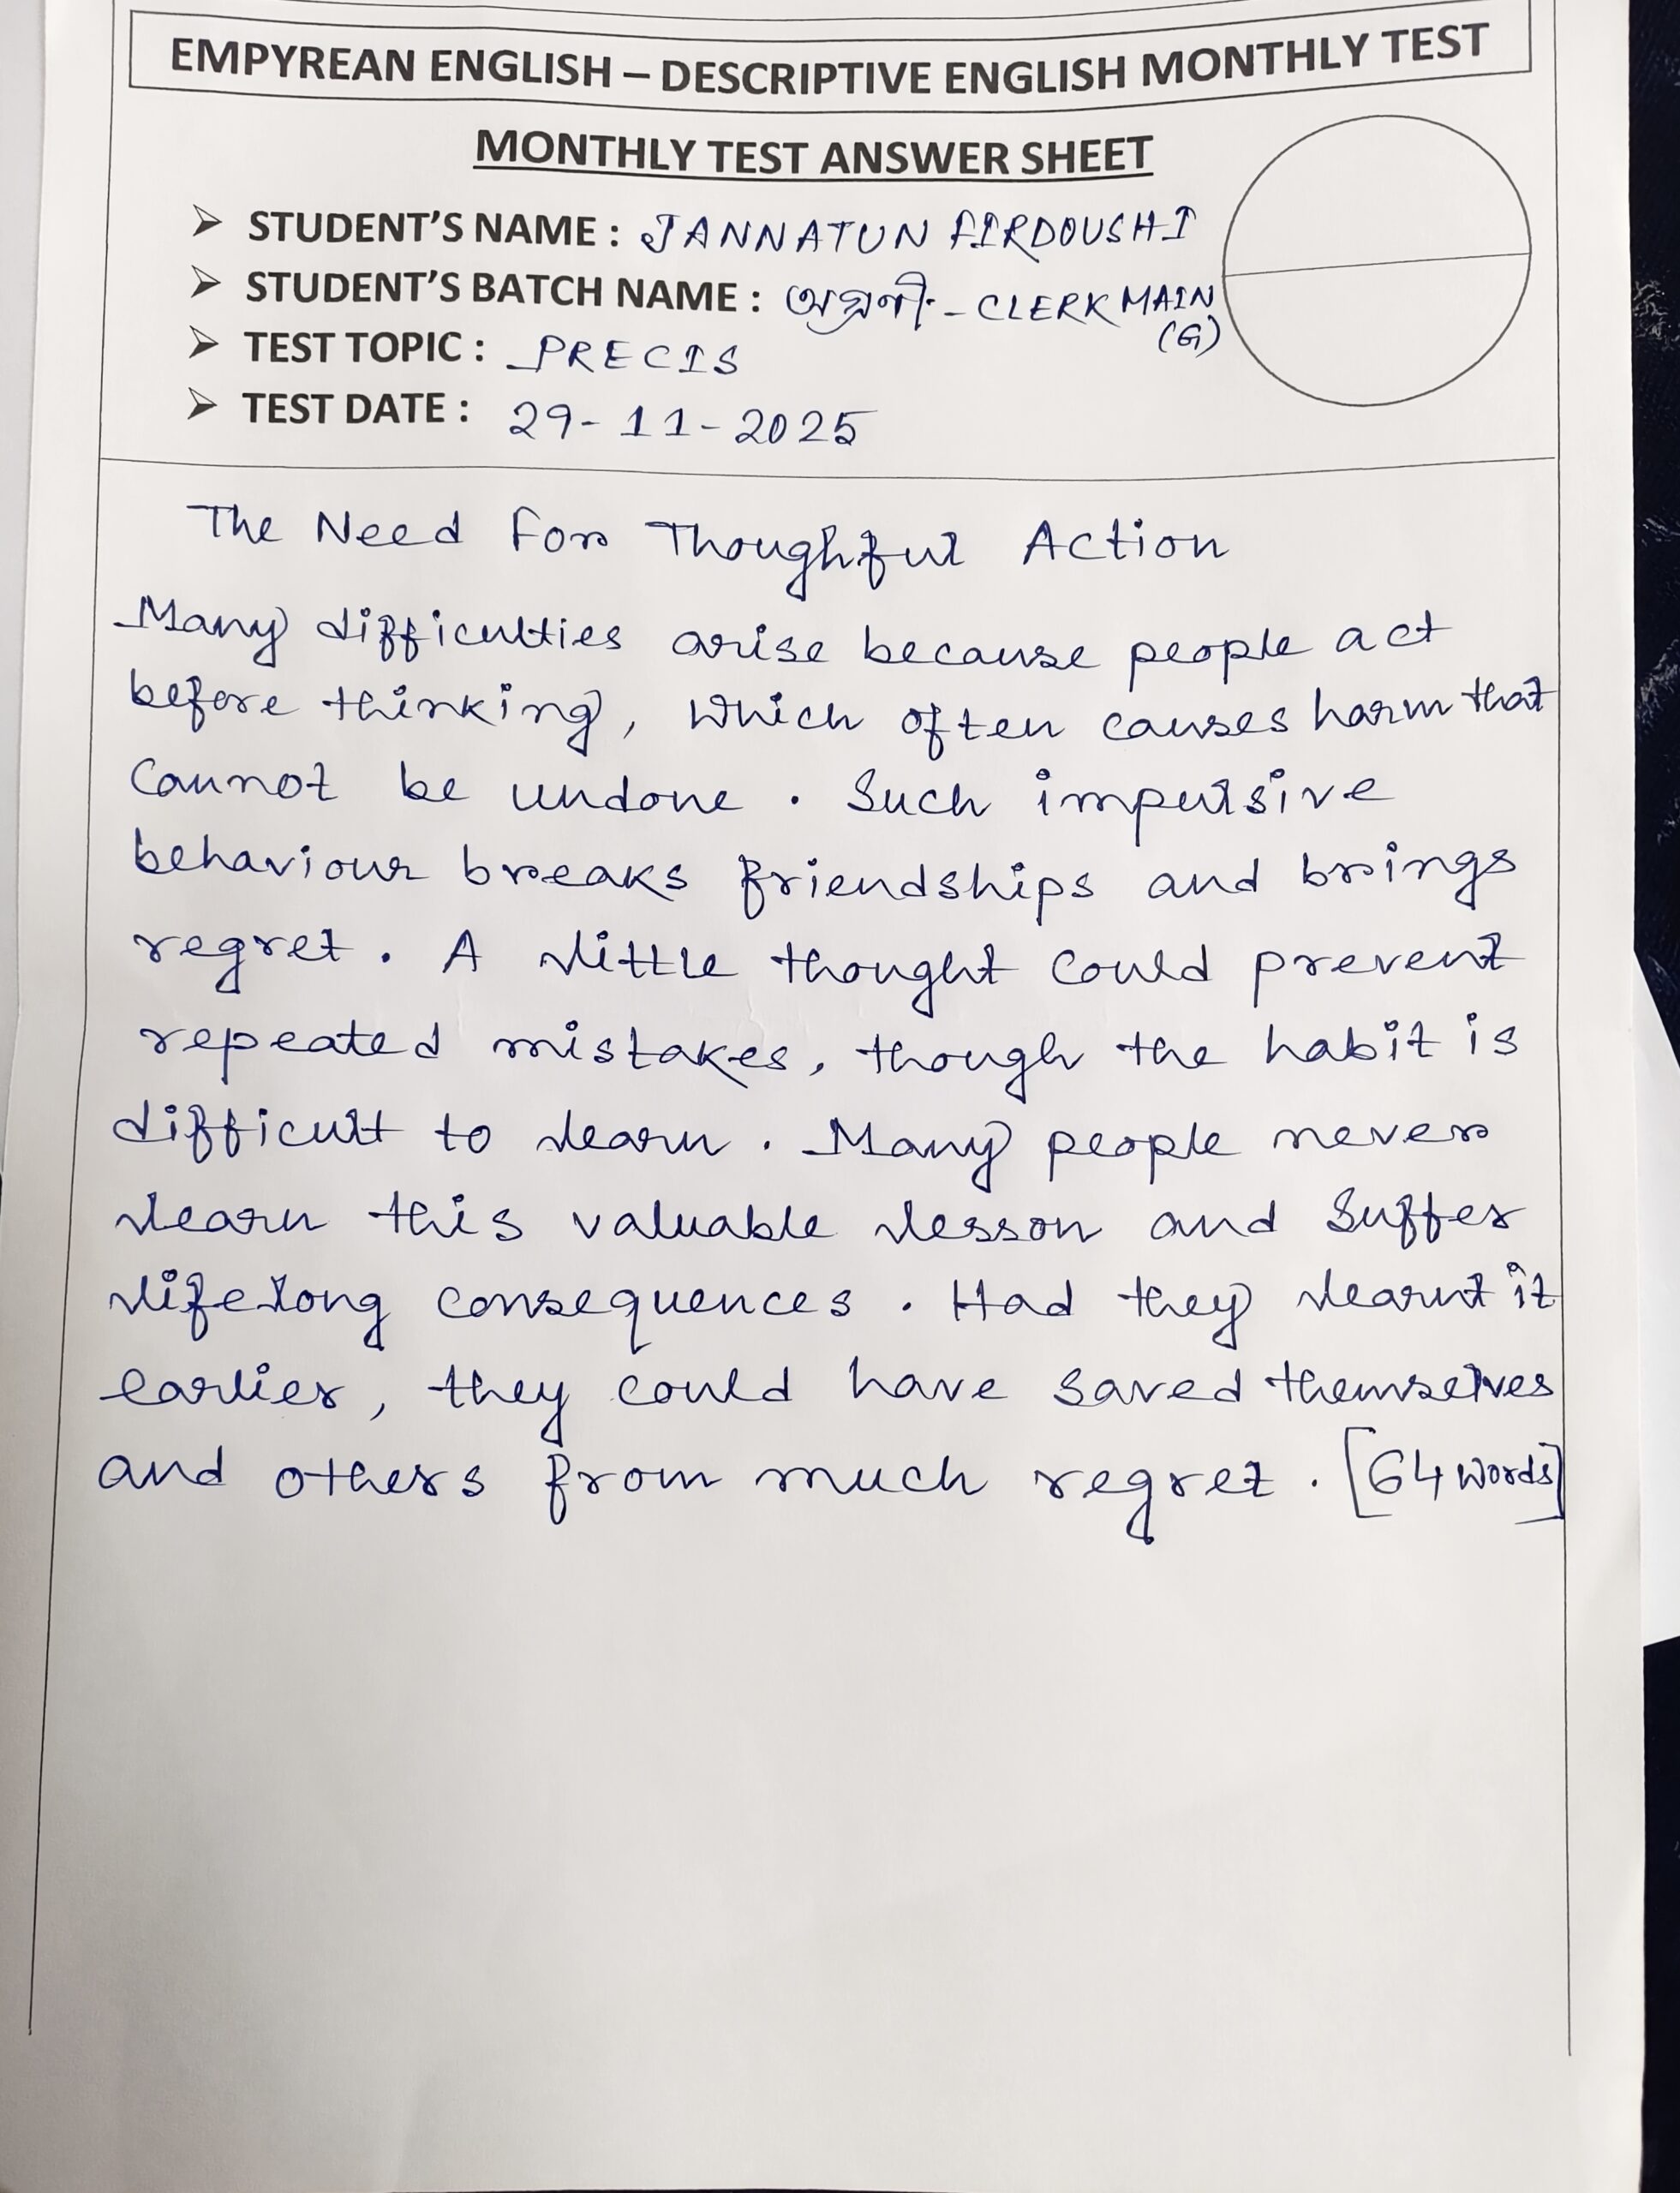 EMPYREAN ENGLISH – DESCRIPTIVE ENGLISH MONTHLY TEST
MONTHLY TEST ANSWER SHEET
➢ STUDENT'S NAME : JANNATUN FIRDOUSHI
➢ STUDENT'S BATCH NAME : অগ্রণী - CLERK MAIN
(G)
➢ TEST TOPIC : PRECIS
➢ TEST DATE : 29-11-2025
The Need For Thoughful Action
Many difficulties arise because people act
before thinking, which often causes harm that
cannot be undone. Such impulsive
behaviour breaks friendships and brings
regret. A little thought could prevent
repeated mistakes, though the habit is
difficult to learn. Many people never
learn this valuable lesson and suffer
lifelong consequences. Had they learnt it
earlier, they could have saved themselves
and others from much regret. [64 words]